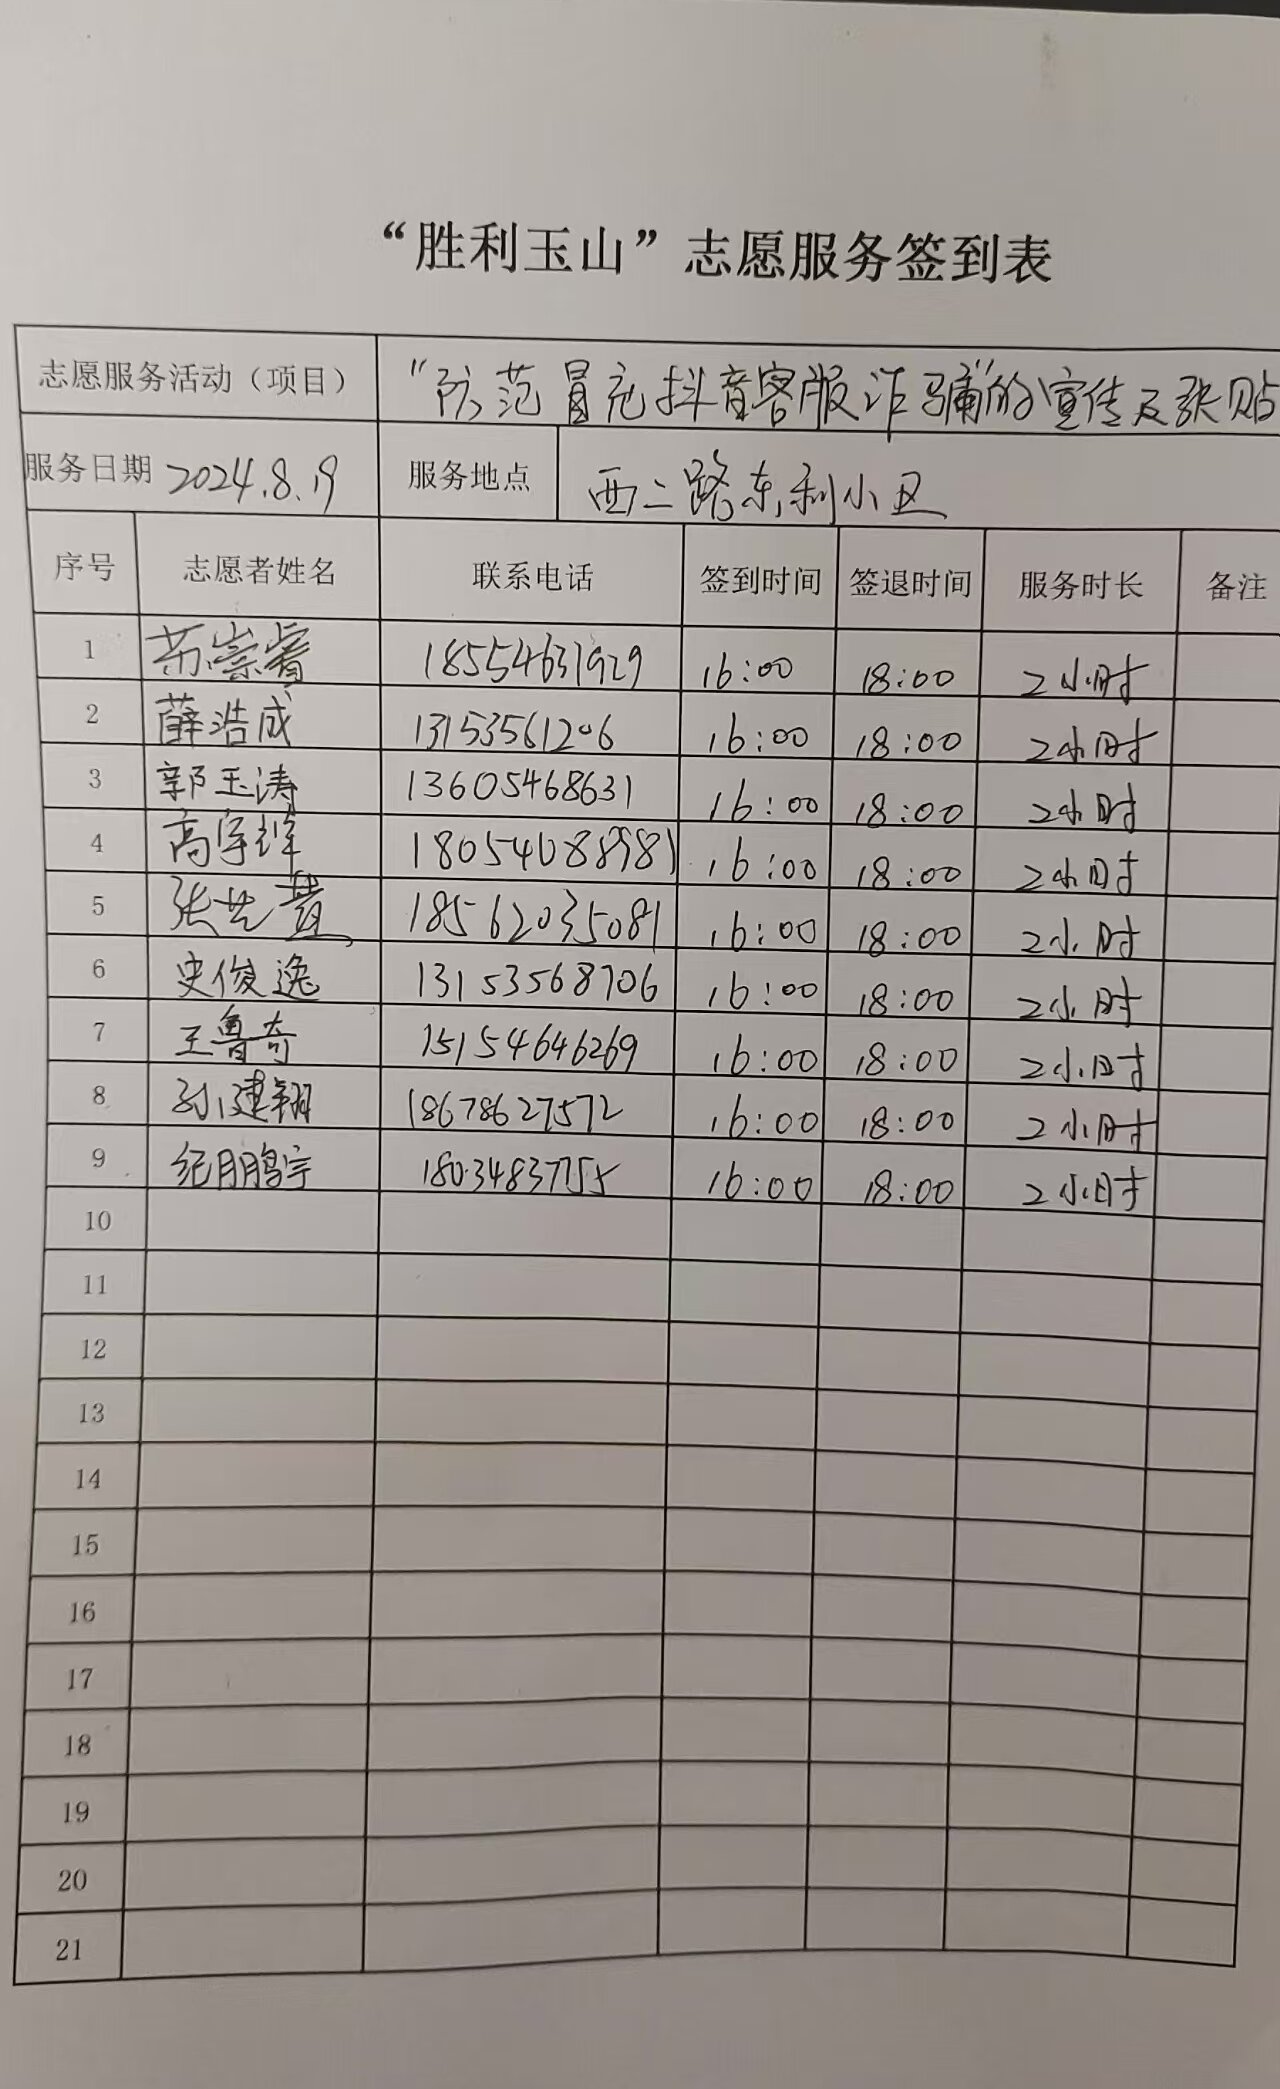 “胜利玉山”志愿服务签到表
志愿服务活动（项目） “防范冒充抖音客服诈骗”的宣传及张贴
服务日期 2024.8.19 服务地点 西二路东利小区
序号 志愿者姓名 联系电话 签到时间 签退时间 服务时长 备注
1 苏崇睿 18554631929 16:00 18:00 2小时
2 薛浩成 13153561206 16:00 18:00 2小时
3 郭玉涛 13605468631 16:00 18:00 2小时
4 高宇 16:00 18:00 2小时
5 张 18562035081 16:00 18:00 2小时
6 史俊逸 13153568706 16:00 18:00 2小时
7 王鲁奇 15154646269 16:00 18:00 2小时
8 孙建翔 18678627572 16:00 18:00 2小时
9 纪鹏宇 18034837755 16:00 18:00 2小时
10
11
12
13
14
15
16
17
18
19
20
21